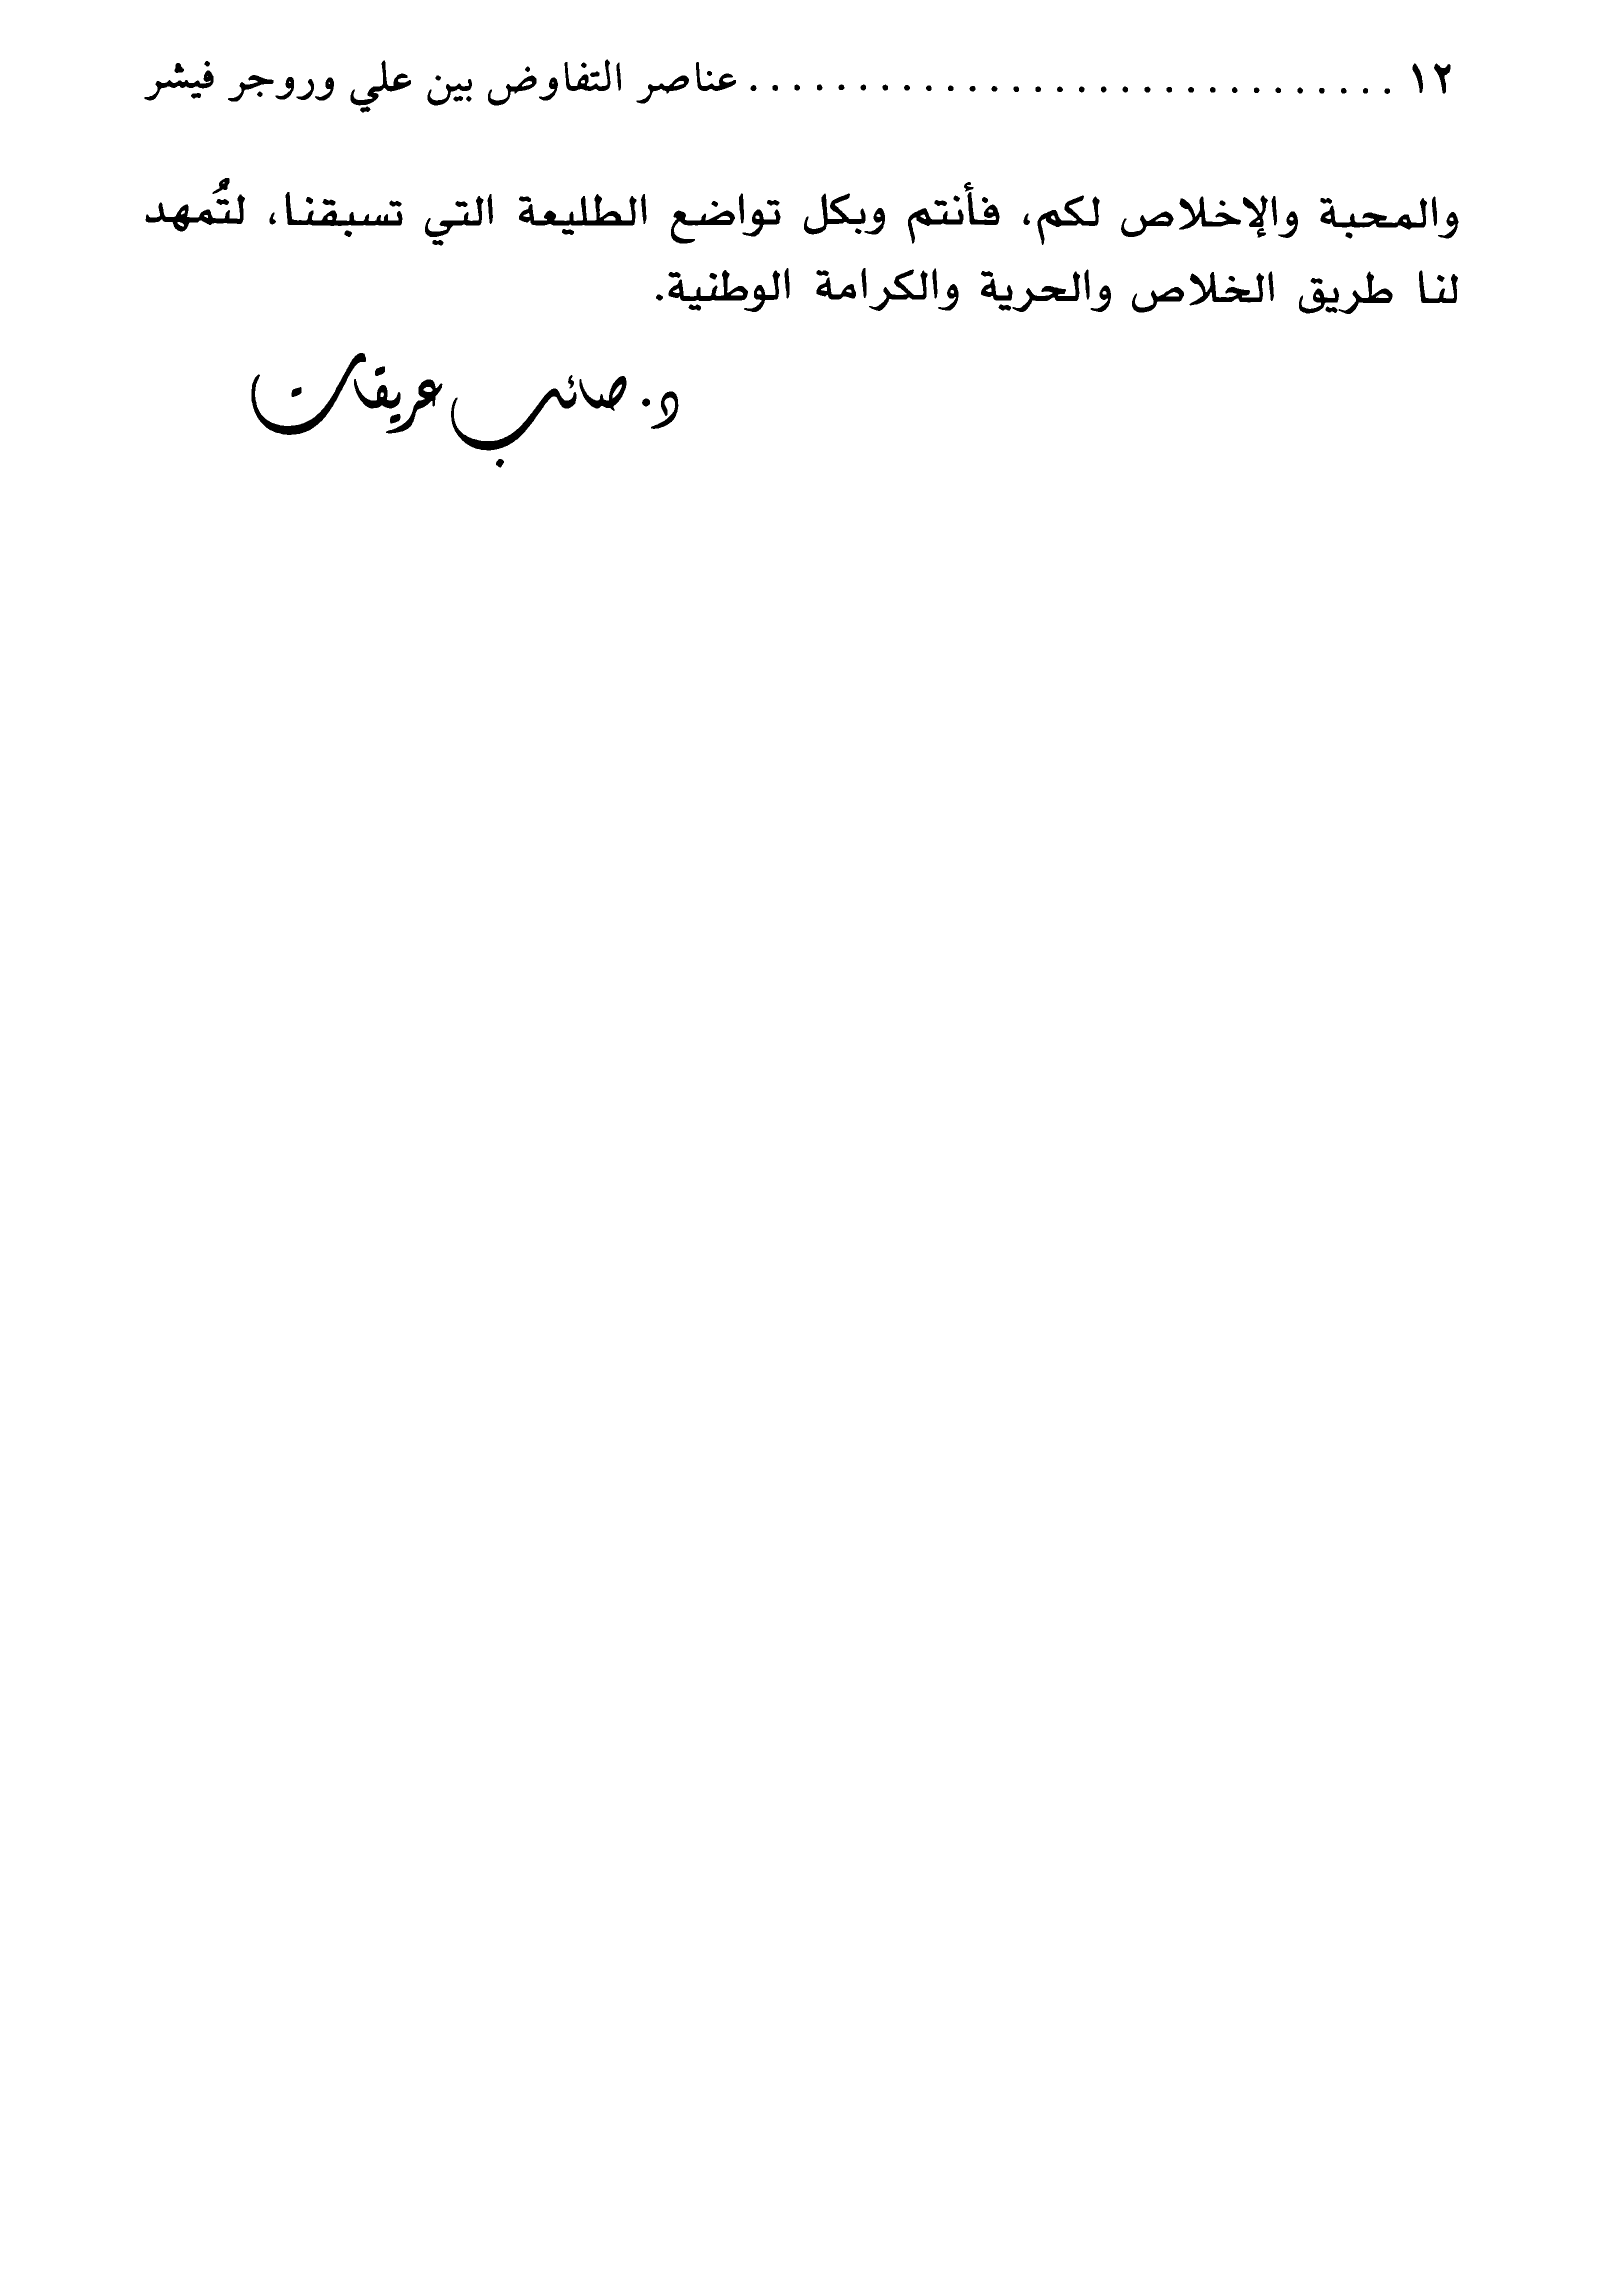 ١٢ .............................. عناصر التفاوض بين علي وروجر فيشر
والمحبة والإخلاص لكم، فأنتم وبكل تواضع الطليعة التي تسبقنا، لتُمهد
لنا طريق الخلاص والحرية والكرامة الوطنية.
د. صائب عريقات